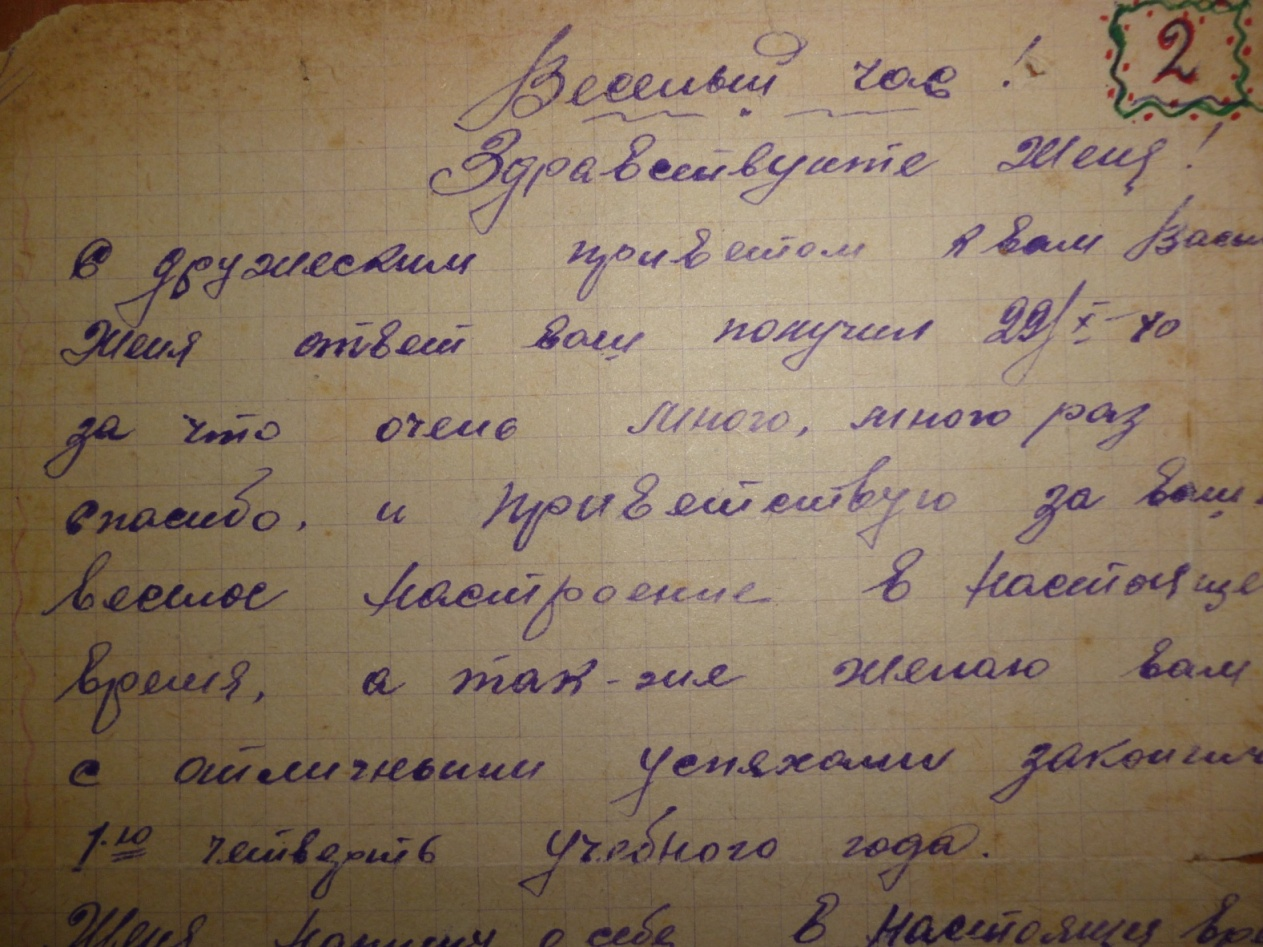 2
Веселый час!
Здравствуйте Женя!
С дружеским приветом к вам
Женя ответ ваш получил 29/X-40
за что очень много, много раз
спасибо, и приветствую за ваше
веселое настроение в настояще
время, а так-же желаю вам
с отличными успяхами закончить
1-ю четверть учебного года.
Женя напишу о себе в настоящия